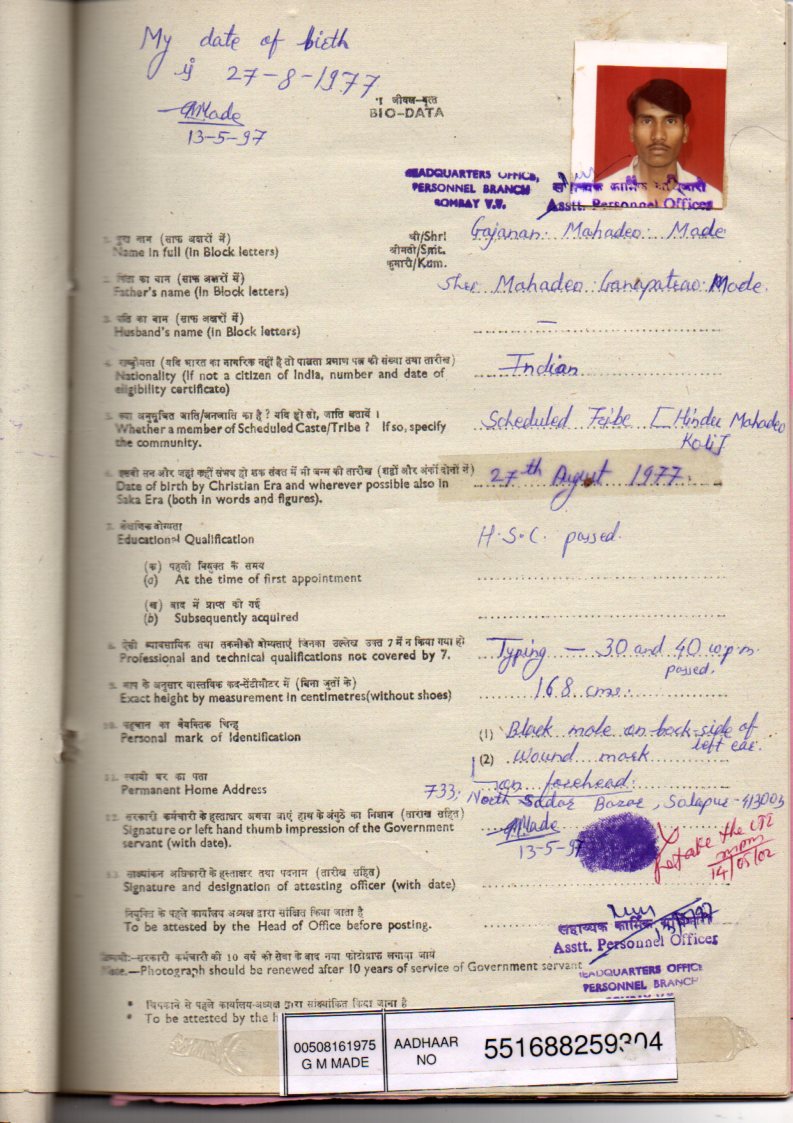 My date of birth
is 27-8-1977
GMade
13-5-97
जीवन-वृत्त
BIO-DATA
HEADQUARTERS OFFICE,
PERSONNEL BRANCH
BOMBAY V.T.
सहायक कार्मिक अधिकारी
Asstt. Personnel Officer
1. पूरा नाम (साफ अक्षरों में) श्री/Shri Gajanan Mahadeo Made
Name in full (in Block letters) श्रीमती/Smt.
कुमारी/Kum.
2. पिता का नाम (साफ अक्षरों में)
Father's name (in Block letters) Shri Mahadeo Ganapatrao Made.
3. पति का नाम (साफ अक्षरों में)
Husband's name (in Block letters) —
4. राष्ट्रीयता (यदि भारत का नागरिक नहीं है तो पात्रता प्रमाण पत्र की संख्या तथा तारीख)
Nationality (if not a citizen of India, number and date of Indian
eligibility certificate)
5. क्या अनुसूचित जाति/जनजाति का है ? यदि हो तो, जाति बतायें ।
Whether a member of Scheduled Caste/Tribe ? If so, specify Scheduled Tribe [Hindu Mahadeo
the community. Koli]
6. इसवी सन और जहां कहीं संभव हो शक संवत में भी जन्म की तारीख (शब्दों और अंकों दोनों में)
Date of birth by Christian Era and wherever possible also in 27th August 1977.
Saka Era (both in words and figures).
7. शैक्षणिक योग्यता
Educational Qualification H.S.C. passed.
(क) पहली नियुक्त के समय
(a) At the time of first appointment
(ख) बाद में प्राप्त की गई
(b) Subsequently acquired
8. ऐसी व्यावसायिक तथा तकनीकी योग्यताएं जिनका उल्लेख उक्त 7 में न किया गया हो
Professional and technical qualifications not covered by 7. Typing — 30 and 40 w.p.m.
passed.
9. माप के अनुसार वास्तविक कद-सेंटीमीटर में (बिना जुतों के)
Exact height by measurement in centimetres(without shoes) 168 cms.
10. पहचान का वैयक्तिक चिन्ह
Personal mark of Identification (1) Black mole on back side of
left ear.
(2) Wound mark
on forehead.
11. स्थायी घर का पता
Permanent Home Address 733, North Sadar Bazar, Solapur-413003
12. सरकारी कर्मचारी के हस्ताक्षर अथवा बाएं हाथ के अंगुठे का निशान (तारीख सहित)
Signature or left hand thumb impression of the Government GMade
servant (with date). 13-5-97
retake the LTI
14/05/02
13. साक्ष्यांकन अधिकारी के हस्ताक्षर तथा पदनाम (तारीख सहित)
Signature and designation of attesting officer (with date)
नियुक्ति के पहले कार्यालय अध्यक्ष द्वारा साक्षित किया जाता है
To be attested by the Head of Office before posting.
सहाय्यक कार्मिक अधिकारी
Asstt. Personnel Officer
टिप्पणी:-सरकारी कर्मचारी की 10 वर्ष की सेवा के बाद नया फोटोग्राफ लगाया जाये
Note.—Photograph should be renewed after 10 years of service of Government servant
HEADQUARTERS OFFICE
PERSONNEL BRANCH
* चिपकाने से पहले कार्यालय-अध्यक्ष द्वारा साक्ष्यांकित किया जाना है
* To be attested by the
00508161975
G M MADE
AADHAAR
NO
551688259304